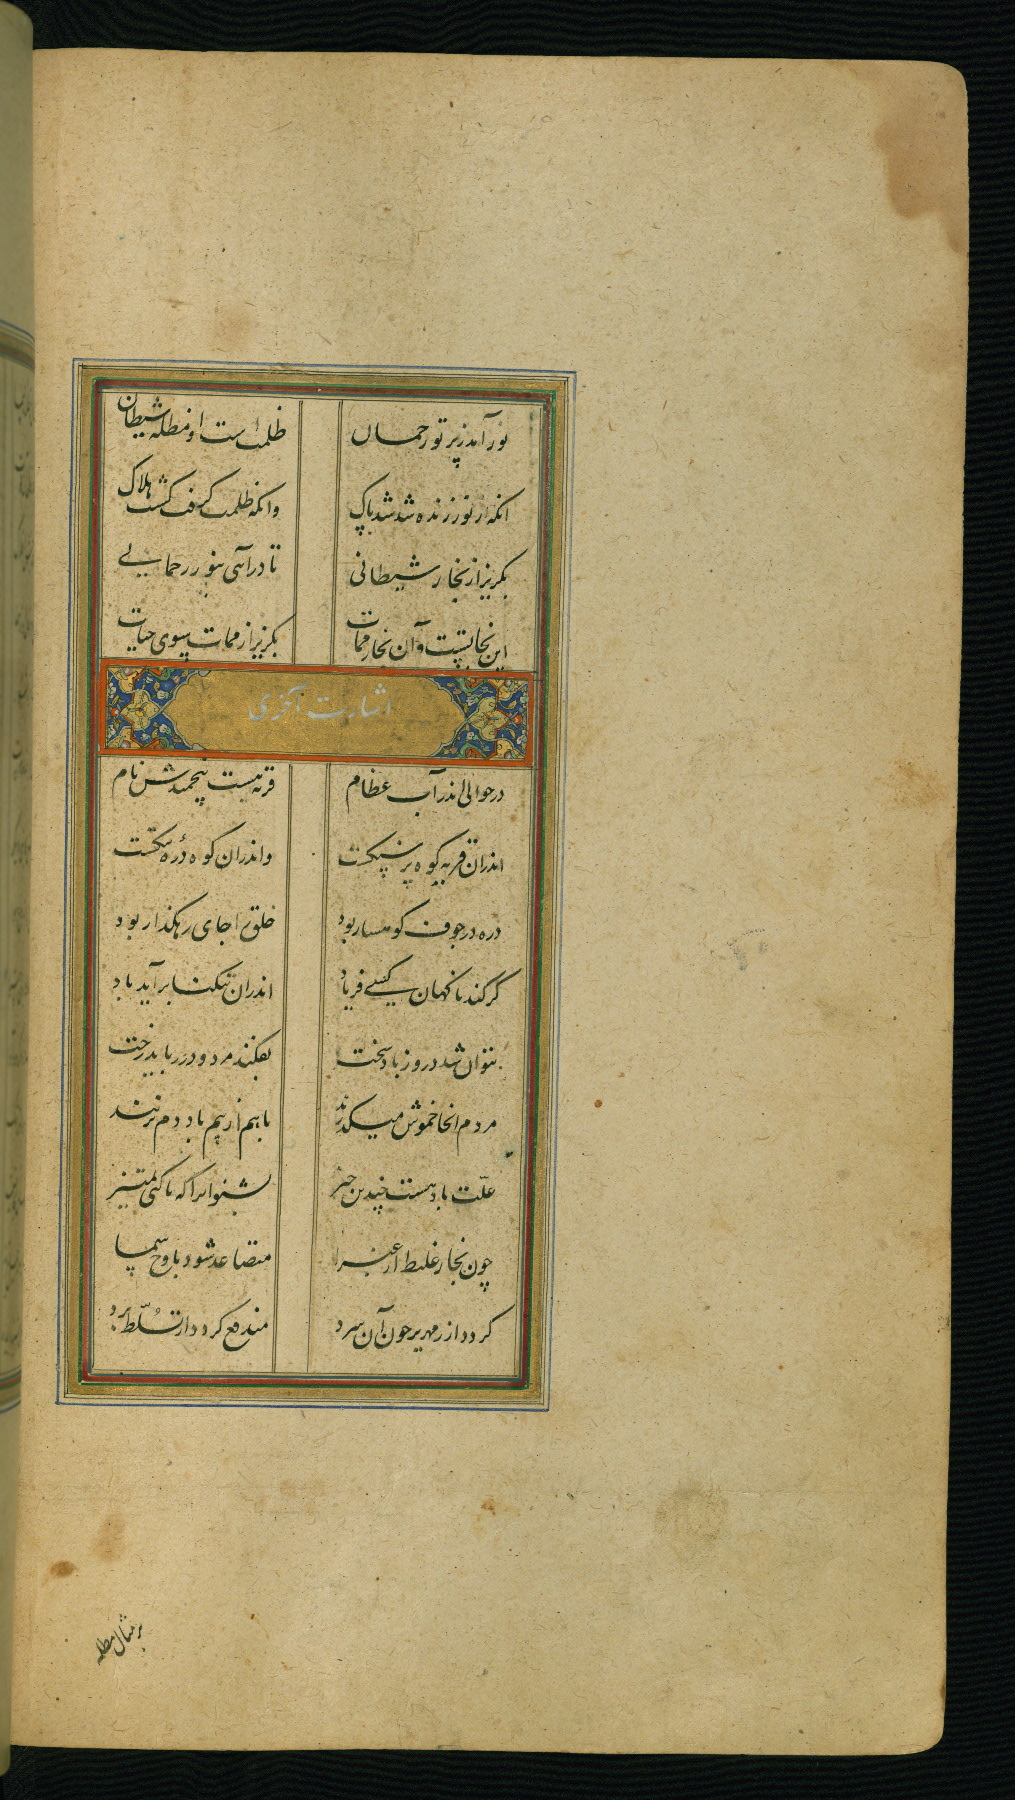 نور آمد ز پرتو رحمان ظلمت است او مظلهٔ شیطان
انکه از نور زنده شد شد پاک وانکه ظلمت گرفت گشت هلاک
بگریز از بخار شیطانی تا درآئی بنور رحمانی
این نجاتست و آن بخار ممات بگریز از ممات بسوی حیات
اشارت آخری
در حوالی اندرآب عظام قریه هست پنجمندش نام
اندران قریه کوه پر سنگست واندران کوه دره تنگست
دره در جوف کوهسار بود خلق را جای رهگذار بود
گر کند ناگهان کسی فریاد اندران تنگنا برآید باد
نتوان شد در وز باد سخت بفکند مرد و در رباید رخت
مردم انجا خموش میگذرند با هم از بیم باد دم نزنند
علت باد هست چندین چیز بشنو انرا که تا کنی تمییز
چون بخار غلیظ از غبرا متصاعد شود باوج سما
گردد از زمهریر چون آن سرد مندفع گردد از تسلط برد
بر مثال مظله